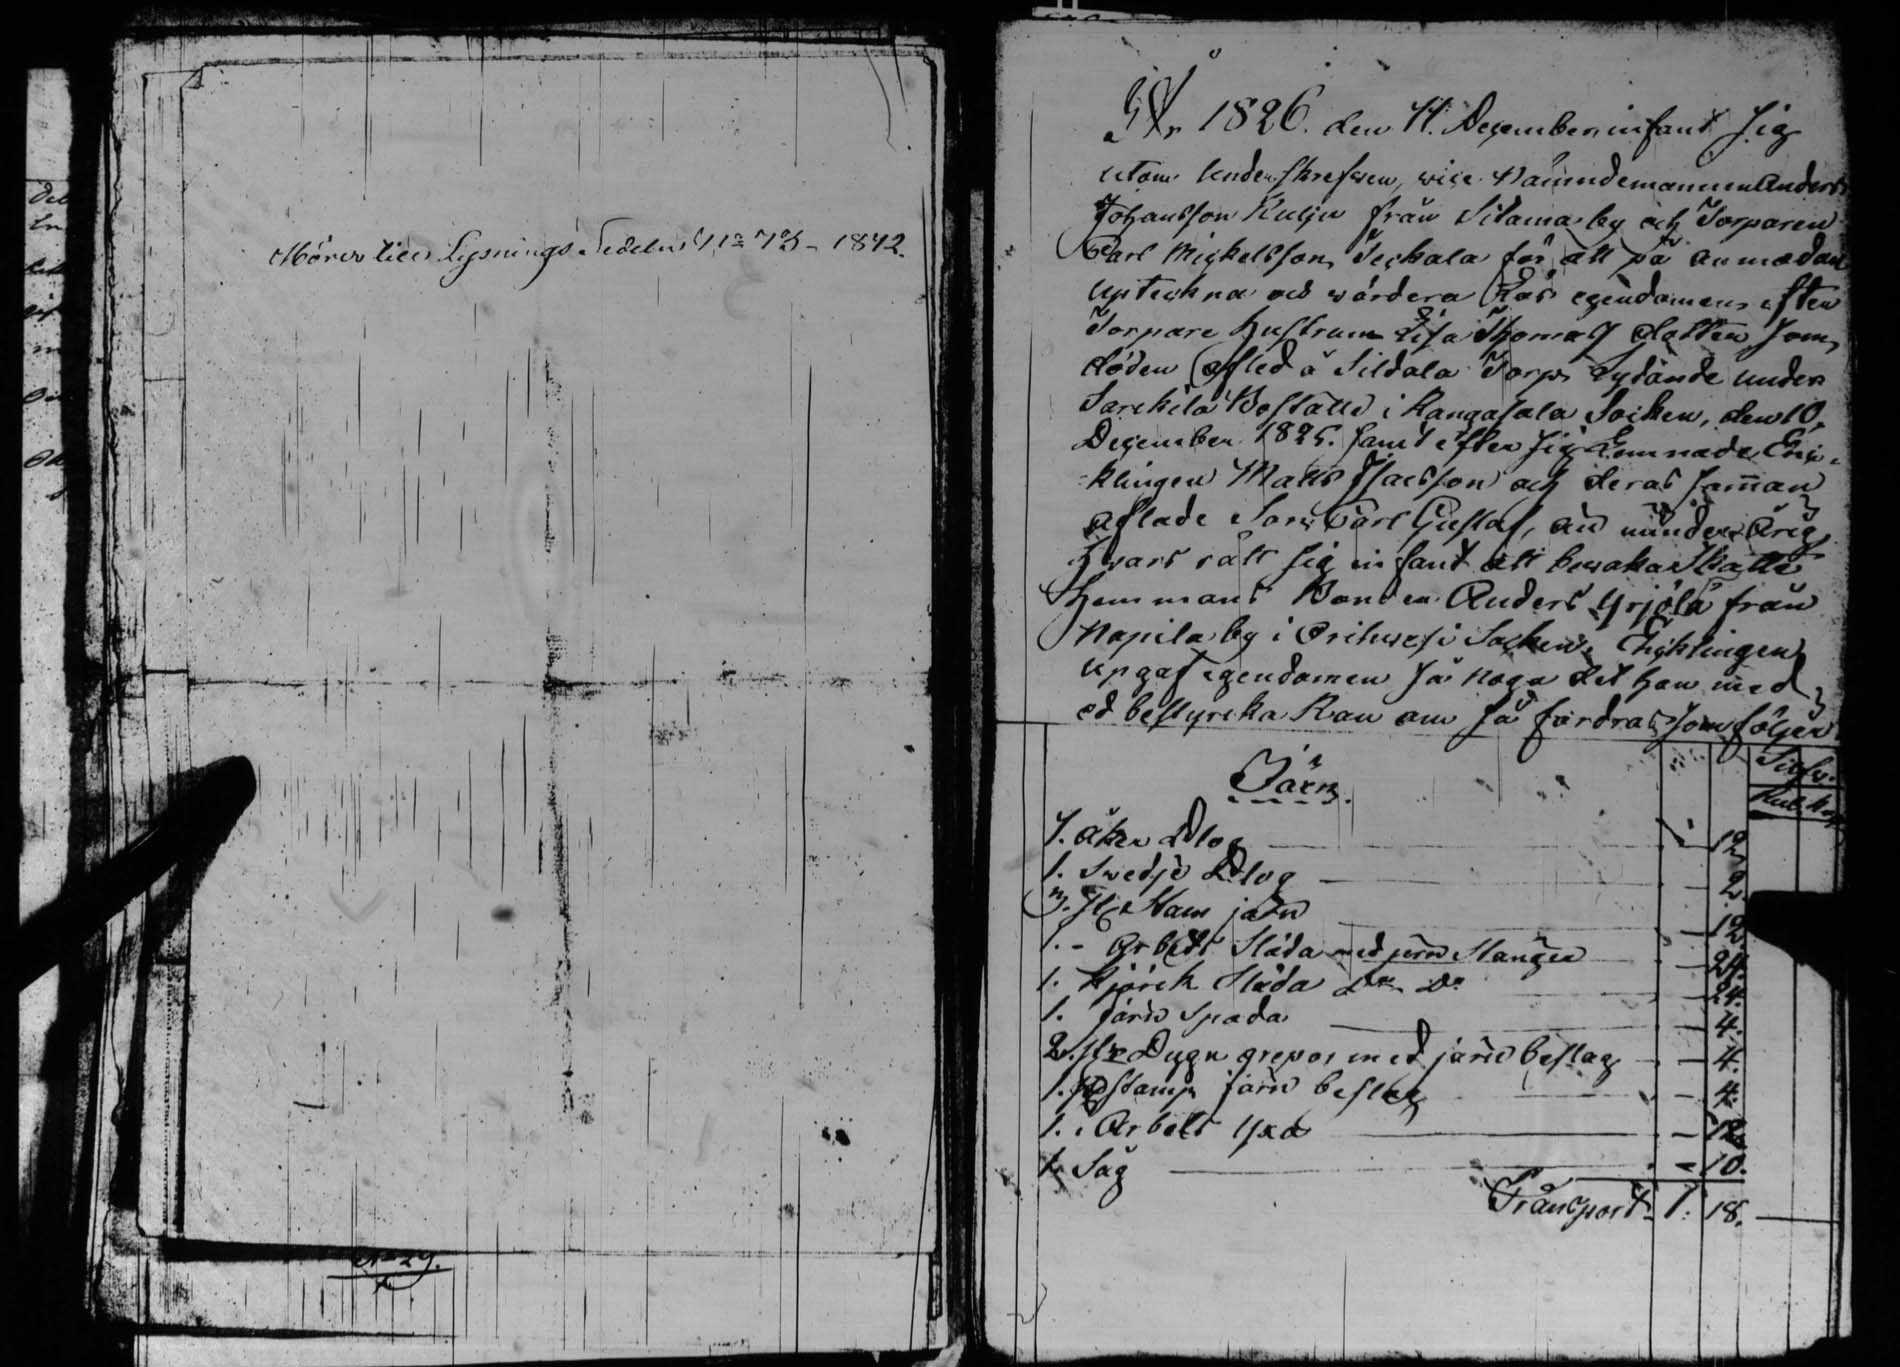 Hörer till Lysnings Sedeln No 73 - 1842.
No 29.
År 1826. den 11. December infant sig
utom Underskrefwen, wice Nämndemannen Anders
Johansson Kulju från Sitama by och Torparen
Carl Michelsson Teckala för att på anmodan
upteckna och wärdera Qwar egendomen efter
Torpare hustrun Lisa Thomas dotter Som
döden afled å Sildala Torp lydande under
Sarekila Boställe i Kangasala Socken, den 10.
December 1825. samt efter sig lemnade Enc-
klingen Matts Isacsson och deras samman
aflade Son Carl Gustaf, än minder årig
hwars rätt sig infant att bewaka Skatte
Hemmans Bonden Anders Yrjölä från
Napila by i Orihwesi Socken, Encklingen
upgaf egendomen så noga det han med
ed bestyrcka kan om så fordras Som följer
Silfw.
Rub. kop
Järn.
1. åker Plog 12
1. Swedje Plog 2.
3. st: Ham järn 12
1. - Arbets Släda med jern Stänger 24.
1. Kjörck Släda Do Do 24.
1. järn Spada 4.
2. st: Dygn grepor med järn beslag 4.
1. Stamp järn beslag 4.
1. Arbets Yxa 12
1. Såg 10.
Transport 1. 18.